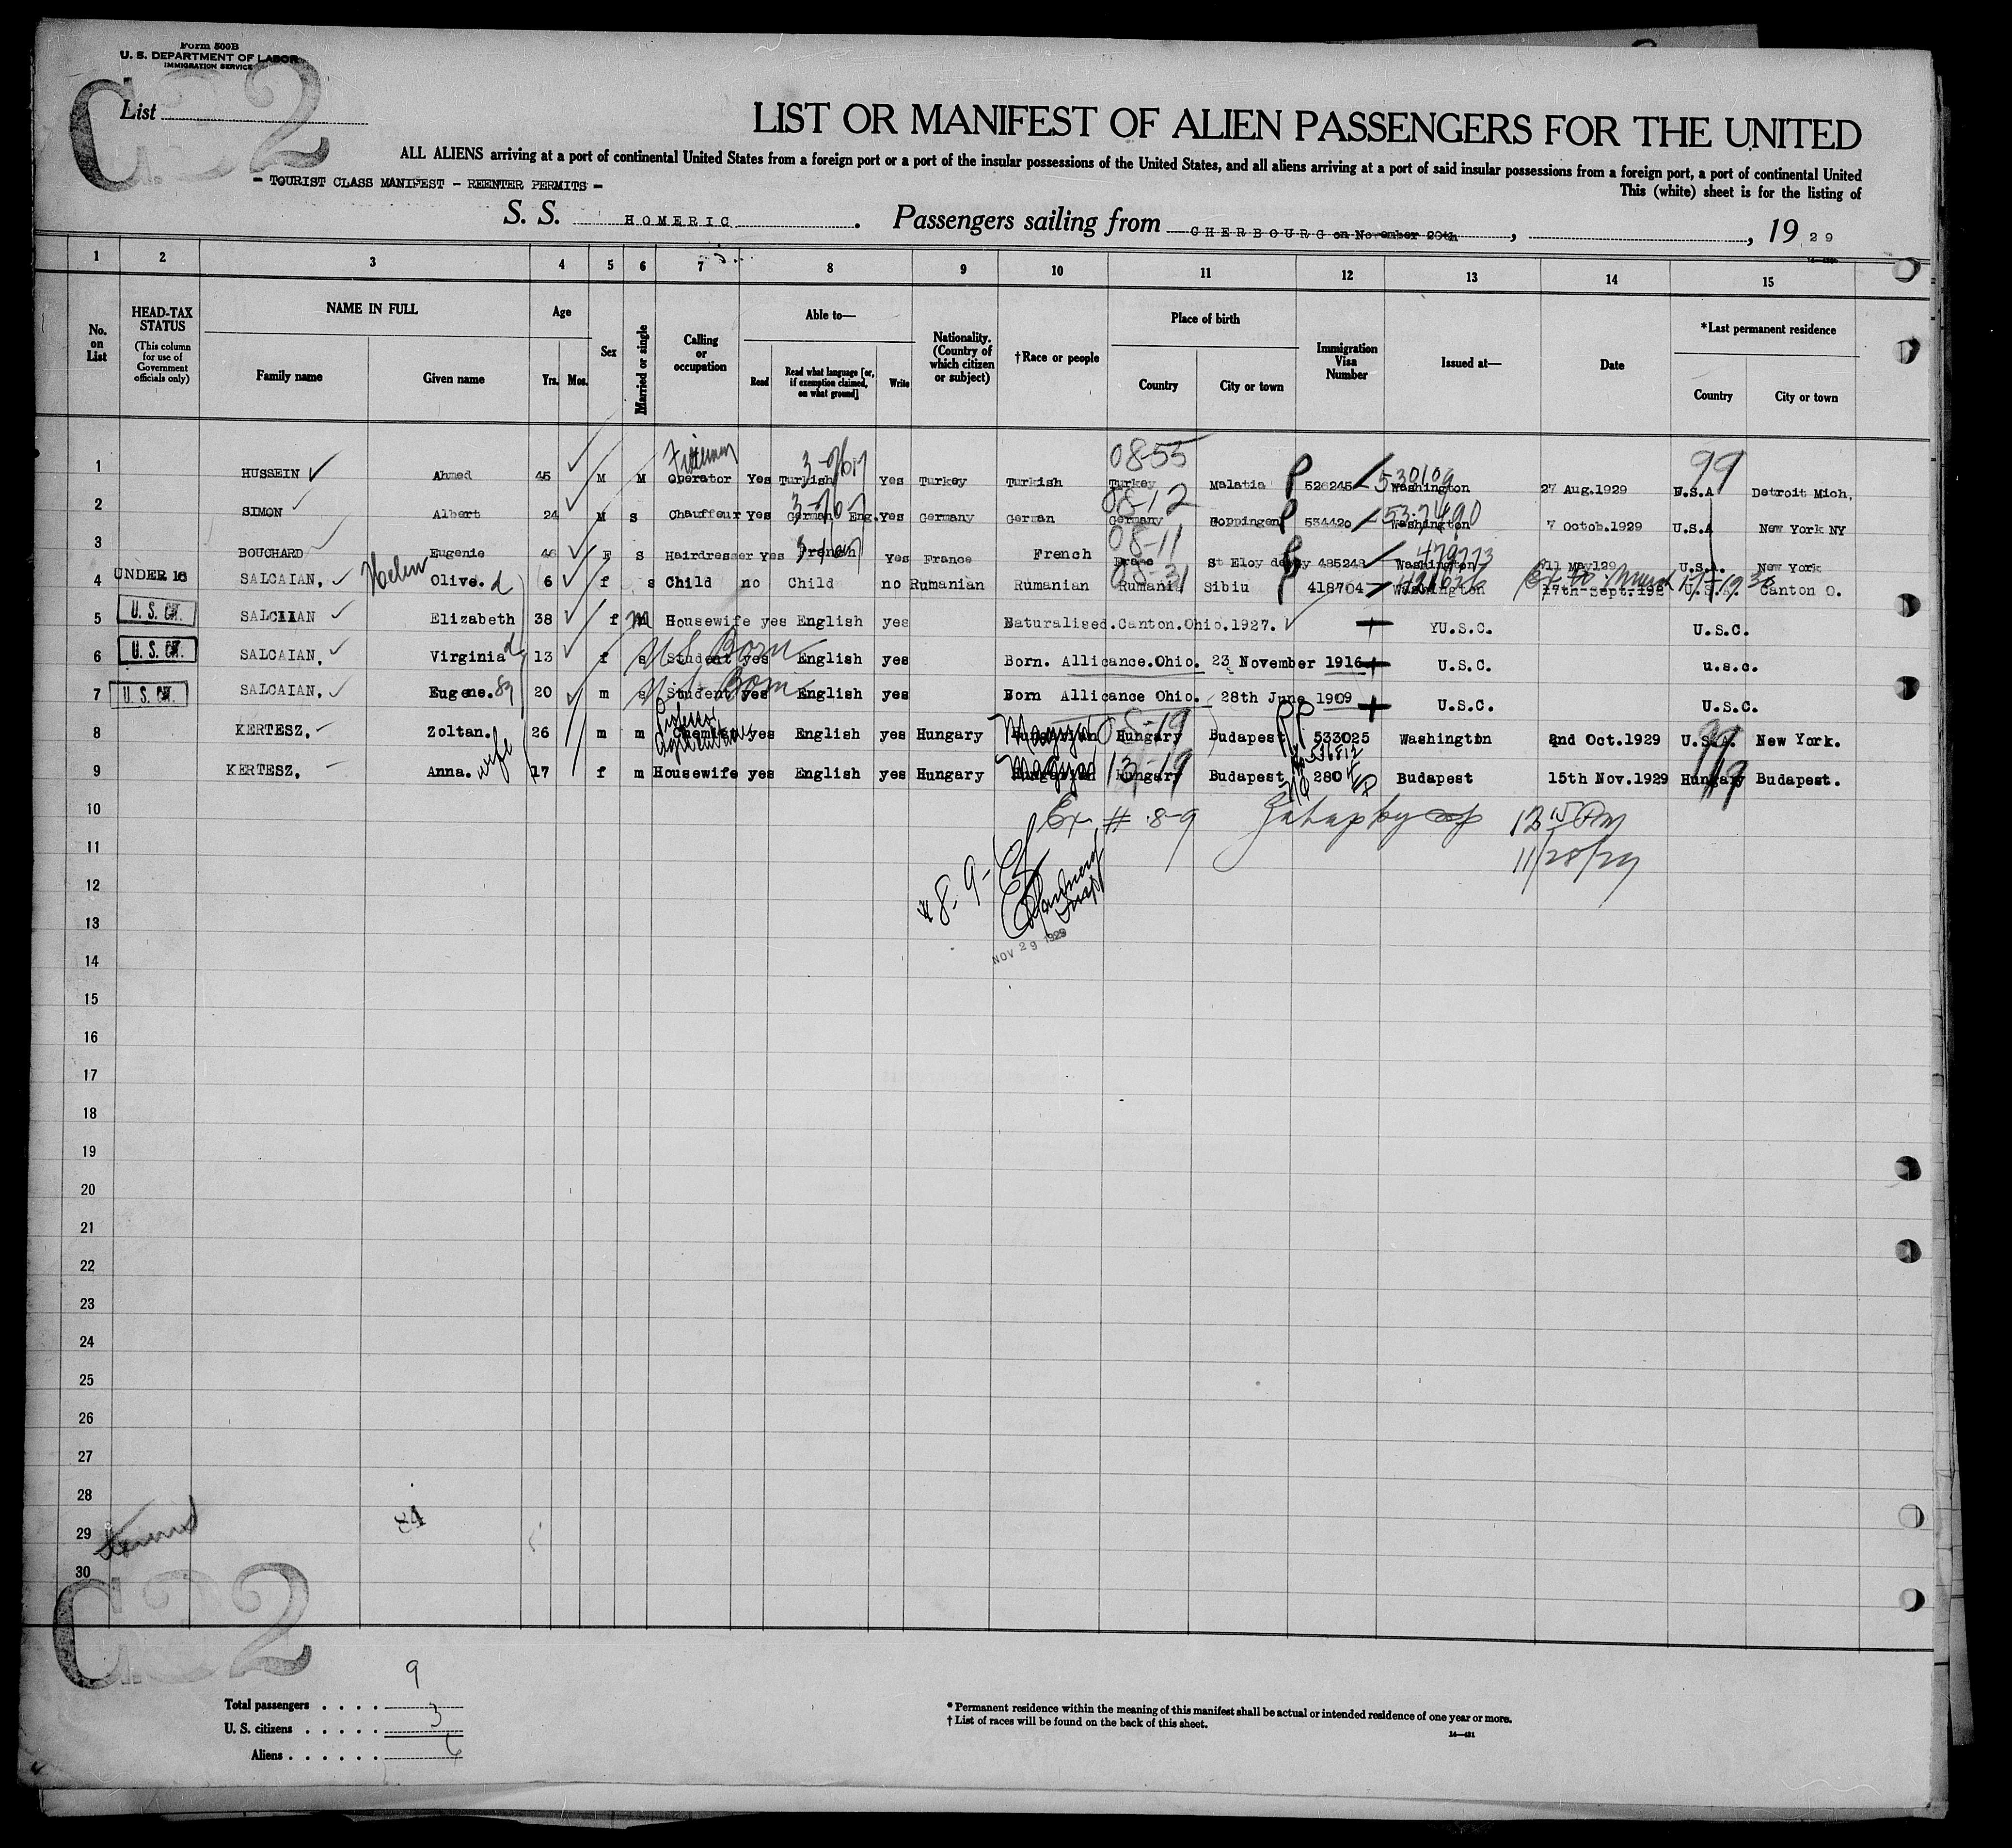 Form 500B
U. S. DEPARTMENT OF LABOR
IMMIGRATION SERVICE
C 2
List
LIST OR MANIFEST OF ALIEN PASSENGERS FOR THE UNITED
ALL ALIENS arriving at a port of continental United States from a foreign port or a port of the insular possessions of the United States, and all aliens arriving at a port of said insular possessions from a foreign port, a port of continental United
This (white) sheet is for the listing of
- TOURIST CLASS MANIFEST - REENTER PERMITS -
S. S. HOMERIC. Passengers sailing from CHERBOURG on November 20th, , 1929
1 2 3 4 5 6 7 8 9 10 11 12 13 14 15
No. on List
HEAD-TAX STATUS
(This column for use of Government officials only)
NAME IN FULL
Family name Given name
Age
Yrs. Mos.
Sex
Married or single
Calling or occupation
Able to—
Read Read what language [or, if exemption claimed, on what ground] Write
Nationality. (Country of which citizen or subject)
†Race or people
Place of birth
Country City or town
Immigration Visa Number
Issued at—
Date
*Last permanent residence
Country City or town
3-26 08-55 530109 99
1 HUSSEIN Ahmed 45 M M Operator Yes Turkish Yes Turkey Turkish Turkey Malatia P 526245 Washington 27 Aug.1929 U.S.A Detroit Mich.
08-12
2 SIMON Albert 24 M S Chauffeur Yes German Eng. Yes Germany German Germany Hoppingen P 534420 Washington 7 Octob.1929 U.S.A New York NY
08-11
3 BOUCHARD Eugenie 46 F S Hairdresser Yes French Yes France French France St Eloy P 485248 Washington 11 May 129 U.S.A. New York
08-31
4 UNDER 16 SALCAIAN. Helen Olive. d 6 f s Child no Child no Rumanian Rumanian Rumania Sibiu P 418704 Washington 17th Sept.192 U.S.A. Canton O.
5 U. S. CIT. SALCIIAN Elizabeth 38 f m Housewife yes English yes Naturalised.Canton.Ohio.1927. YU.S.C. U.S.C.
6 U. S. CIT. SALCAIAN. Virginia d 13 f s Student yes English yes Born. Allicance.Ohio. 23 November 1916 U.S.C. u.s.c.
U.S. Born
7 U. S. CIT. SALCAIAN. Eugene. 20 m s Student yes English yes Born Allicance Ohio. 28th June 1909 U.S.C. U.S.C.
U.S. Born
Professor Agriculture
8 KERTESZ. Zoltan. 26 m m Chemist yes English yes Hungary Magyar 08-19 Hungary Budapest PP 533025 Washington 2nd Oct.1929 U.S.A. 99 New York.
9 KERTESZ. Anna. wife 17 f m Housewife yes English yes Hungary Magyar 13-19 Hungary Budapest 280 Budapest 15th Nov.1929 Hungary 19 Budapest.
10 Ex. # 8-9
11 11/28/29
12 # 8-9-
13
NOV 29 1929
14
15
16
17
18
19
20
21
22
23
24
25
26
27
28
84
29
30
C 2
9
Total passengers . . . .
U. S. citizens . . . . . 3
Aliens . . . . . . 6
* Permanent residence within the meaning of this manifest shall be actual or intended residence of one year or more.
† List of races will be found on the back of this sheet.
14—421